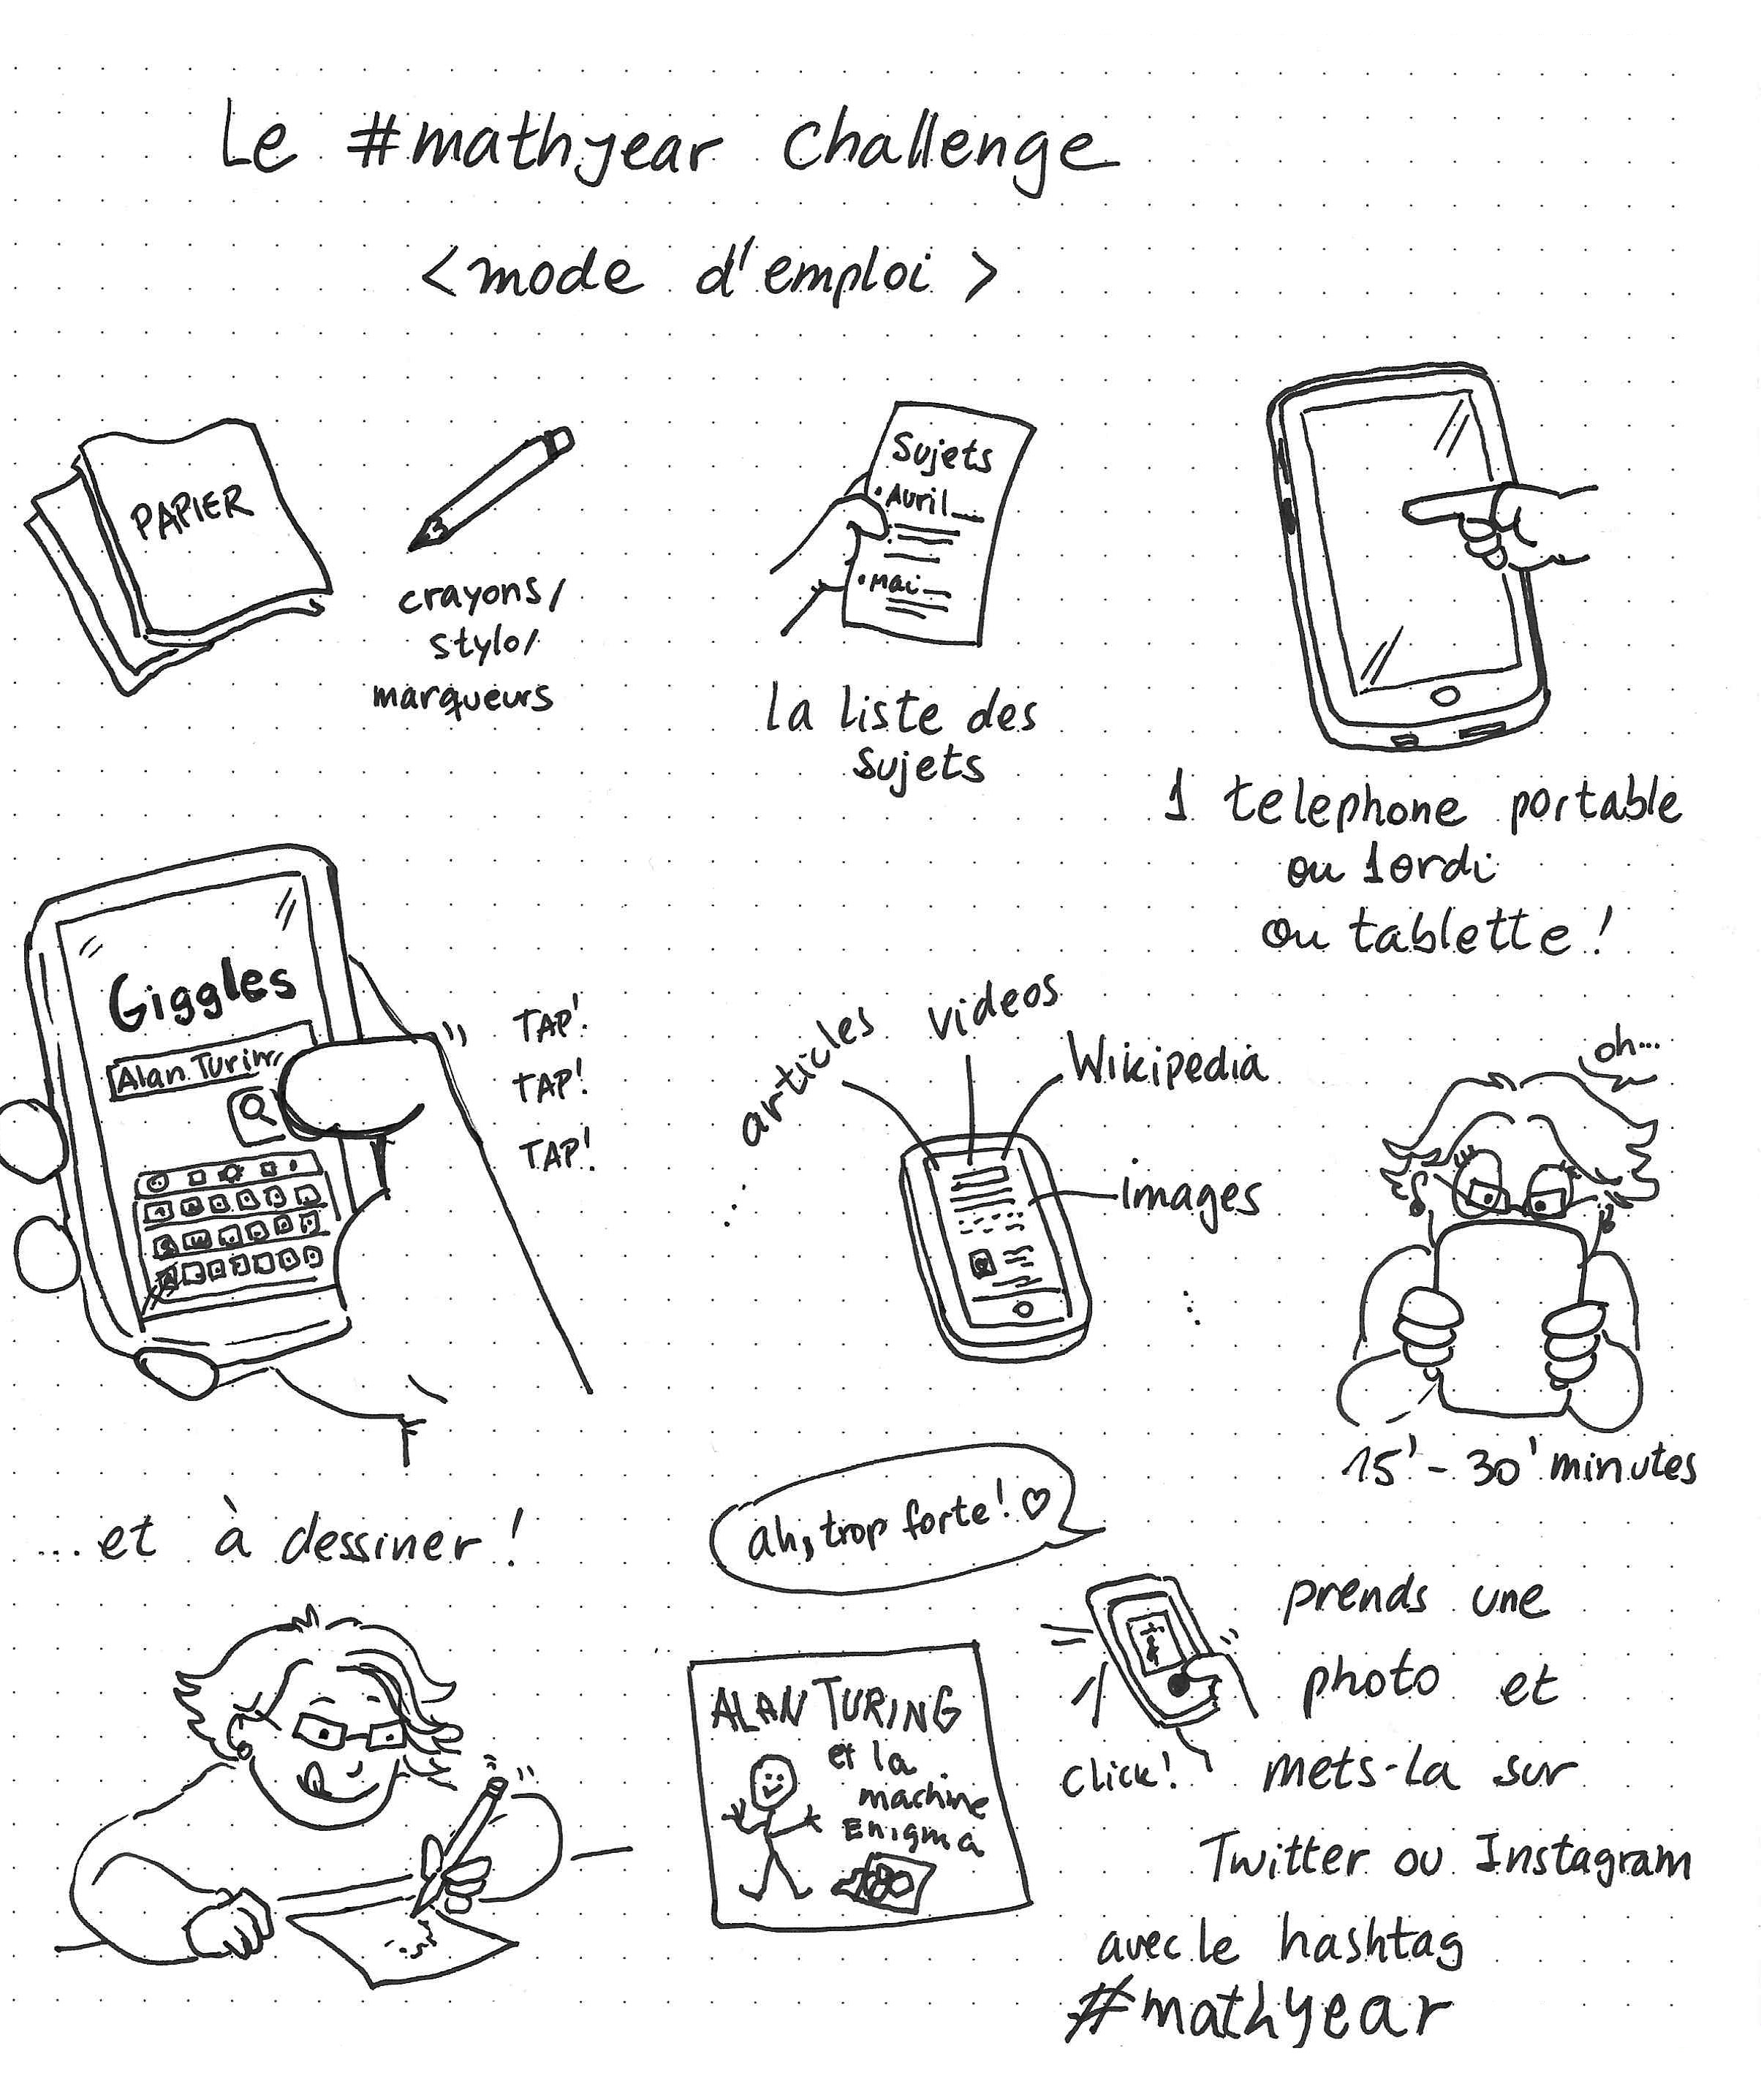 Le #mathyear challenge
<mode d'emploi>
PAPIER
crayons/
stylo/
marqueurs
Sujets
• Avril
• Mai
la liste des
sujets
1 telephone portable
ou 1 ordi
ou tablette!
Giggles
Alan Turin
TAP!
TAP!
TAP!
... articles
videos
Wikipedia
images
...
oh...
15' - 30' minutes
... et à dessiner!
ah, trop forte! ♡
ALAN TURING
et la
machine
Enigma
click!
prends une
photo et
mets-la sur
Twitter ou Instagram
avec le hashtag
#mathyear